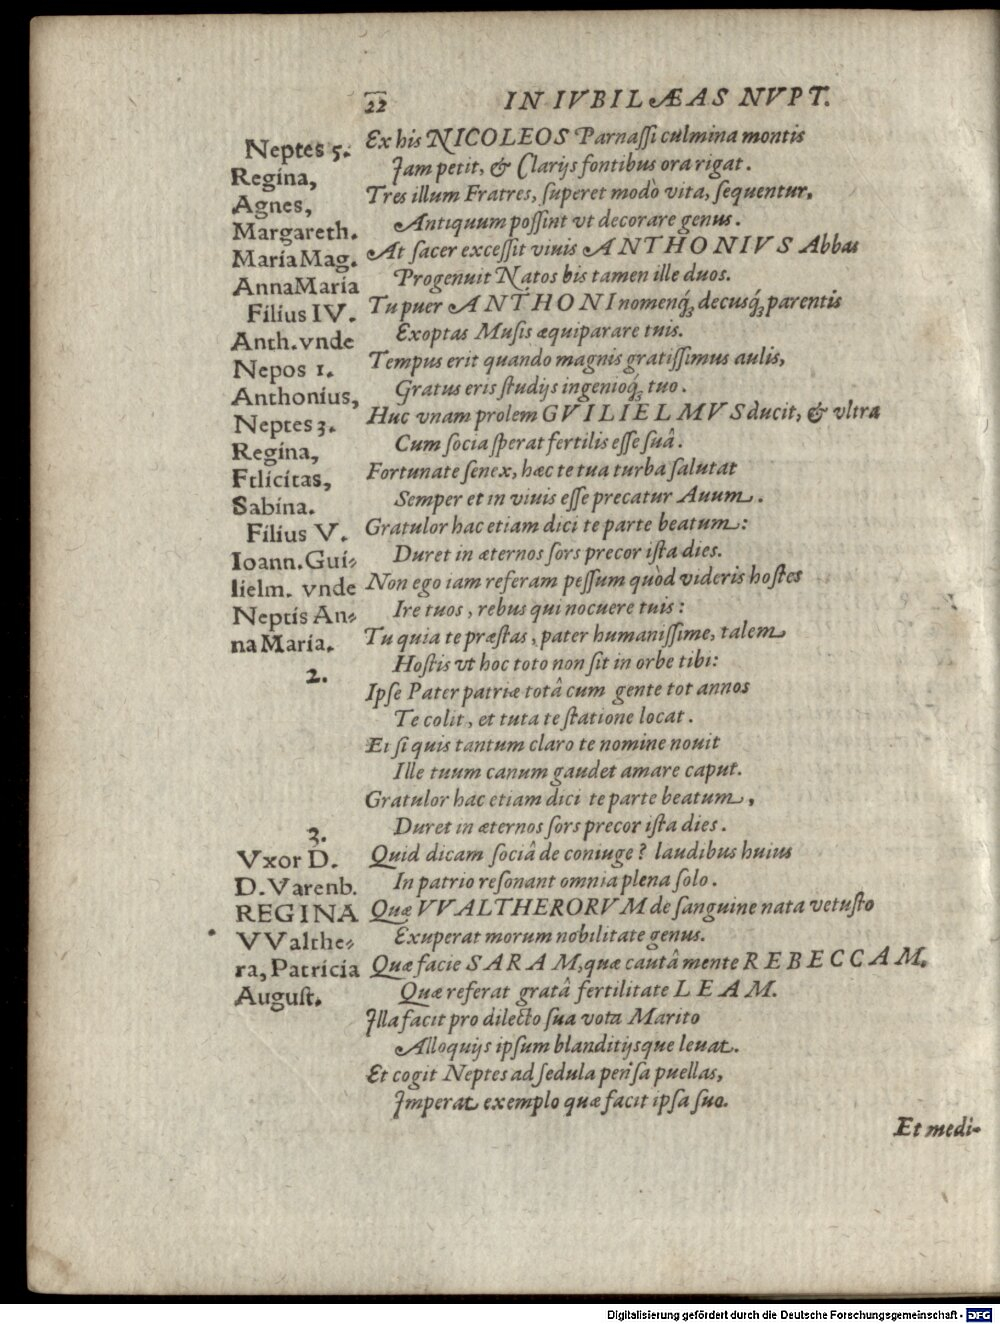 22 IN IVBILÆAS NVPT.
Neptes 5.
Regina,
Agnes,
Margareth.
Maria Mag.
Anna Maria
Filius IV.
Anth. vnde
Nepos 1.
Anthonius,
Neptes 3.
Regina,
Felicitas,
Sabina.
Filius V.
Ioann. Gui-
lielm. vnde
Neptis An-
na Maria.
2.
3.
Vxor D.
D. Varenb.
REGINA
VValthe-
ra, Patricia
August.
Ex his NICOLEOS Parnaſſi culmina montis
Jam petit, & Clarijs fontibus ora rigat.
Tres illum Fratres, ſuperet modò vita, ſequentur,
Antiquum poſſint vt decorare genus.
At ſacer exceſſit viuis ANTHONIVS Abbas
Progenuit Natos bis tamen ille duos.
Tu puer ANTHONI nomenq́; decusq́; parentis
Exoptas Muſis æquiparare tuis.
Tempus erit quando magnis gratiſſimus aulis,
Gratus eris ſtudijs ingenioq́; tuo.
Huc vnam prolem GVILIELMVS ducit, & vltra
Cum ſocia ſperat fertilis eſſe ſuâ.
Fortunate ſenex, hæc te tua turba ſalutat
Semper et in viuis eſſe precatur Auum.
Gratulor hac etiam dici te parte beatum:
Duret in æternos ſors precor iſta dies.
Non ego iam referam peſſum quòd videris hoſtes
Ire tuos, rebus qui nocuere tuis:
Tu quia te præſtas, pater humaniſſime, talem
Hoſtis vt hoc toto non ſit in orbe tibi:
Ipſe Pater patriæ totâ cum gente tot annos
Te colit, et tuta te ſtatione locat.
Et ſi quis tantum claro te nomine nouit
Ille tuum canum gaudet amare caput.
Gratulor hac etiam dici te parte beatum,
Duret in æternos ſors precor iſta dies.
Quid dicam ſociâ de coniuge? laudibus huius
In patrio reſonant omnia plena ſolo.
Quæ VVALTHERORVM de ſanguine nata vetuſto
Exuperat morum nobilitate genus.
Quæ facie SARAM, quæ cautâ mente REBECCAM,
Quæ referat gratâ fertilitate LEAM.
Jlla facit pro dilecto ſua vota Marito
Alloquijs ipſum blanditijsque leuat.
Et cogit Neptes ad ſedula penſa puellas,
Jmperat exemplo quæ facit ipſa ſuo.
Et medi-
Digitalisierung gefördert durch die Deutsche Forschungsgemeinschaft - DFG